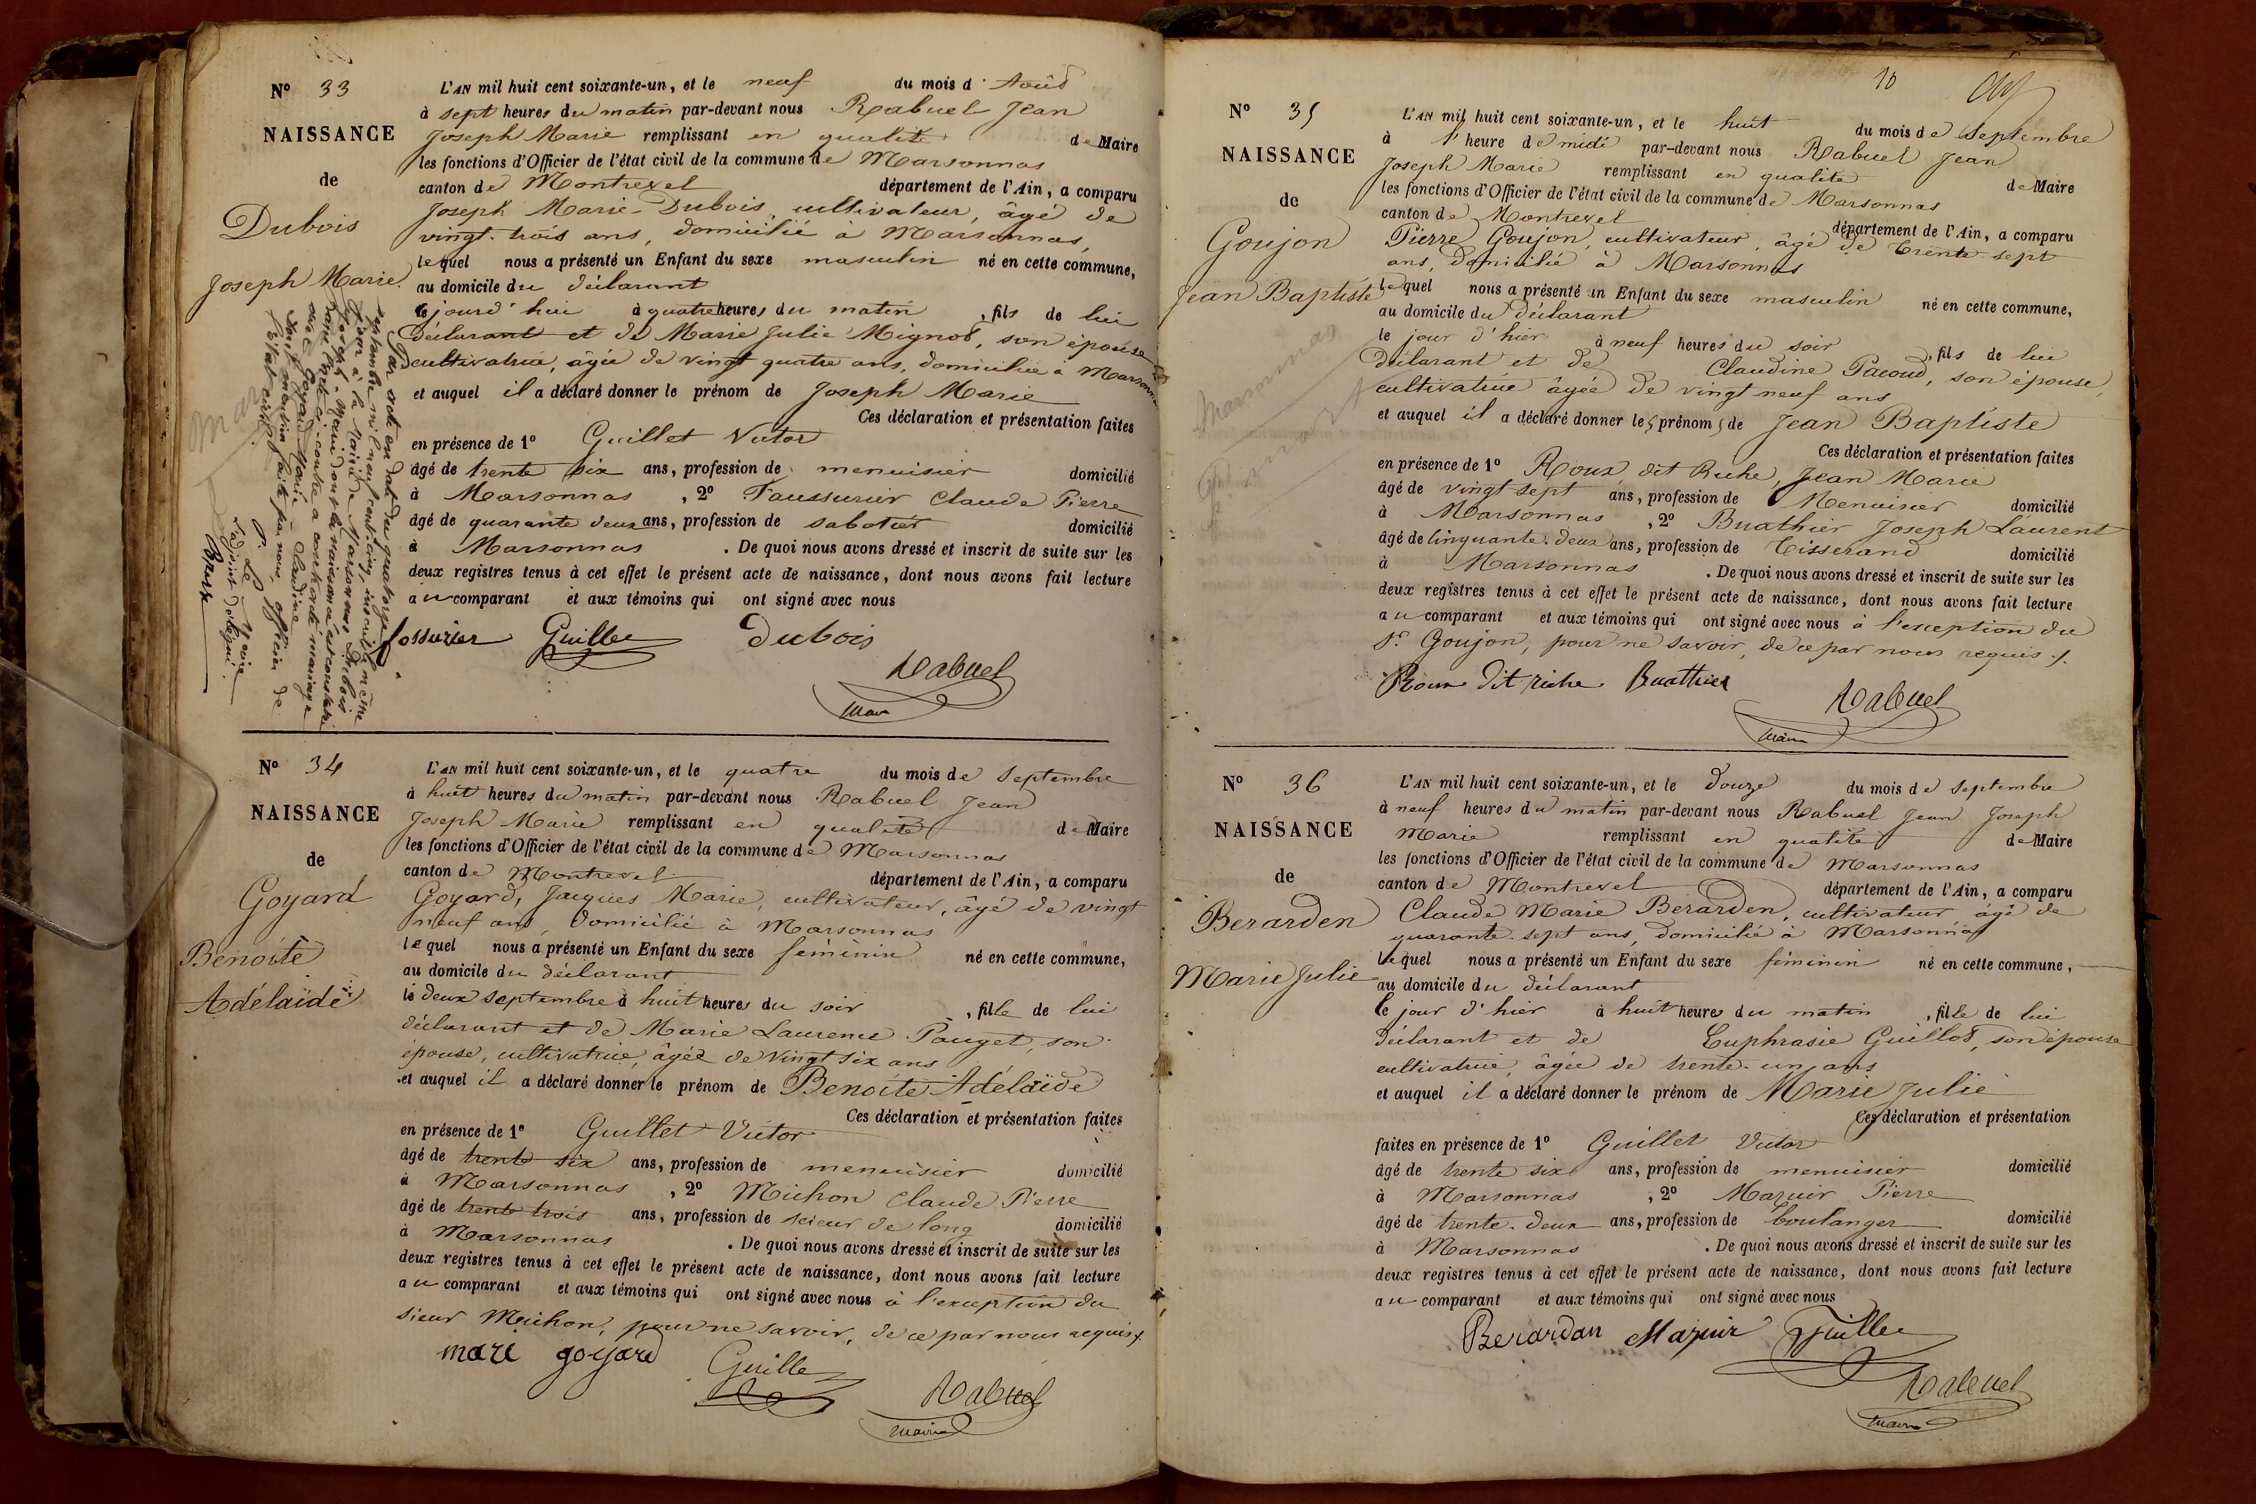 N° 33
NAISSANCE
de
Dubois
Joseph Marie
L'AN mil huit cent soixante-un, et le neuf du mois d'Août
à sept heures du matin par-devant nous Rabuel Jean
Joseph Marie remplissant en qualité de Maire
les fonctions d'Officier de l'état civil de la commune de Marsonnas
canton de Montrevel département de l'Ain, a comparu
Joseph Marie Dubois, cultivateur, âgé de
vingt-trois ans, domicilié à Marsonnas,
lequel nous a présenté un Enfant du sexe masculin né en cette commune,
au domicile du déclarant
ce jourd'hui à quatre heures du matin, fils de lui
déclarant et de Marie Julie Mignot, son épouse
cultivatrice, âgée de vingt quatre ans, domiciliée à Marsonnas
et auquel il a déclaré donner le prénom de Joseph Marie
Ces déclaration et présentation faites
en présence de 1° Guillet Victor
âgé de trente six ans, profession de menuisier domicilié
à Marsonnas, 2° Faussurier Claude Pierre
âgé de quarante deux ans, profession de sabotier domicilié
à Marsonnas. De quoi nous avons dressé et inscrit de suite sur les
deux registres tenus à cet effet le présent acte de naissance, dont nous avons fait lecture
au comparant et aux témoins qui ont signé avec nous
fossurier Guillet Dubois
Rabuel
maire
Par acte en date du quatorze
septembre mil neuf cent cinq, inscrit le même
jour à la Mairie de Marsonnas, Dubois
Joseph-Marie dont la naissance est constatée
par l'acte ci-contre a contracté mariage
avec Goyard Marie-Claudine
Dont mention faite par nous officier de
l'état civil
P. Le Maire
L'adjoint délégué
N° 34
NAISSANCE
de
Goyard
Benoîte
Adélaïde
L'AN mil huit cent soixante-un, et le quatre du mois de Septembre
à huit heures du matin par-devant nous Rabuel Jean
Joseph Marie remplissant en qualité de Maire
les fonctions d'Officier de l'état civil de la commune de Marsonnas
canton de Montrevel département de l'Ain, a comparu
Goyard, Jacques Marie, cultivateur, âgé de vingt
neuf ans, domicilié à Marsonnas
lequel nous a présenté un Enfant du sexe féminin né en cette commune,
au domicile du déclarant
le deux septembre à huit heures du soir, fille de lui
déclarant et de Marie Laurence Pauget, son
épouse, cultivatrice, âgée de vingt six ans
et auquel il a déclaré donner le prénom de Benoîte Adélaïde
Ces déclaration et présentation faites
en présence de 1° Guillet Victor
âgé de trente six ans, profession de menuisier domicilié
à Marsonnas, 2° Michon Claude Pierre
âgé de trente trois ans, profession de scieur de long domicilié
à Marsonnas. De quoi nous avons dressé et inscrit de suite sur les
deux registres tenus à cet effet le présent acte de naissance, dont nous avons fait lecture
au comparant et aux témoins qui ont signé avec nous à l'exception du
sieur Michon, pour ne savoir, de ce par nous requis ./.
mari goyard Guillet
Rabuel
maire
10
N° 35
NAISSANCE
de
Goujon
Jean Baptiste
Marsonnas
L'AN mil huit cent soixante-un, et le huit du mois de Septembre
à l'heure de midi par-devant nous Rabuel Jean
Joseph Marie remplissant en qualité de Maire
les fonctions d'Officier de l'état civil de la commune de Marsonnas
canton de Montrevel département de l'Ain, a comparu
Pierre Goujon, cultivateur, âgé de trente-sept
ans, domicilié à Marsonnas
lequel nous a présenté un Enfant du sexe masculin né en cette commune,
au domicile du déclarant
le jour d'hier à neuf heures du soir, fils de lui
déclarant et de Claudine Pacoud, son épouse,
cultivatrice âgée de vingt neuf ans
et auquel il a déclaré donner les prénoms de Jean Baptiste
Ces déclaration et présentation faites
en présence de 1° Roux dit Riche, Jean Marie
âgé de vingt sept ans, profession de Menuisier domicilié
à Marsonnas, 2° Buathier Joseph Laurent
âgé de cinquante-deux ans, profession de Tisserand domicilié
à Marsonnas. De quoi nous avons dressé et inscrit de suite sur les
deux registres tenus à cet effet le présent acte de naissance, dont nous avons fait lecture
au comparant et aux témoins qui ont signé avec nous à l'exception du
Sr Goujon, pour ne savoir, de ce par nous requis ./.
Roux dit riche Buathier
Rabuel
maire
N° 36
NAISSANCE
de
Berarden
Marie Julie
L'AN mil huit cent soixante-un, et le douze du mois de septembre
à neuf heures du matin par-devant nous Rabuel Jean Joseph
Marie remplissant en qualité de Maire
les fonctions d'Officier de l'état civil de la commune de Marsonnas
canton de Montrevel département de l'Ain, a comparu
Claude Marie Berarden, cultivateur âgé de
quarante-sept ans, domicilié à Marsonnas
lequel nous a présenté un Enfant du sexe féminin né en cette commune,
au domicile du déclarant
le jour d'hier à huit heures du matin, fille de lui
déclarant et de Euphrasie Guillot, son épouse
cultivatrice, âgée de trente-un ans
et auquel il a déclaré donner le prénom de Marie Julie
Ces déclaration et présentation
faites en présence de 1° Guillet Victor
âgé de trente six ans, profession de menuisier domicilié
à Marsonnas, 2° Mazuir Pierre
âgé de trente-deux ans, profession de boulanger domicilié
à Marsonnas. De quoi nous avons dressé et inscrit de suite sur les
deux registres tenus à cet effet le présent acte de naissance, dont nous avons fait lecture
au comparant et aux témoins qui ont signé avec nous
Berardan Mazuir Guillet
Rabuel
maire